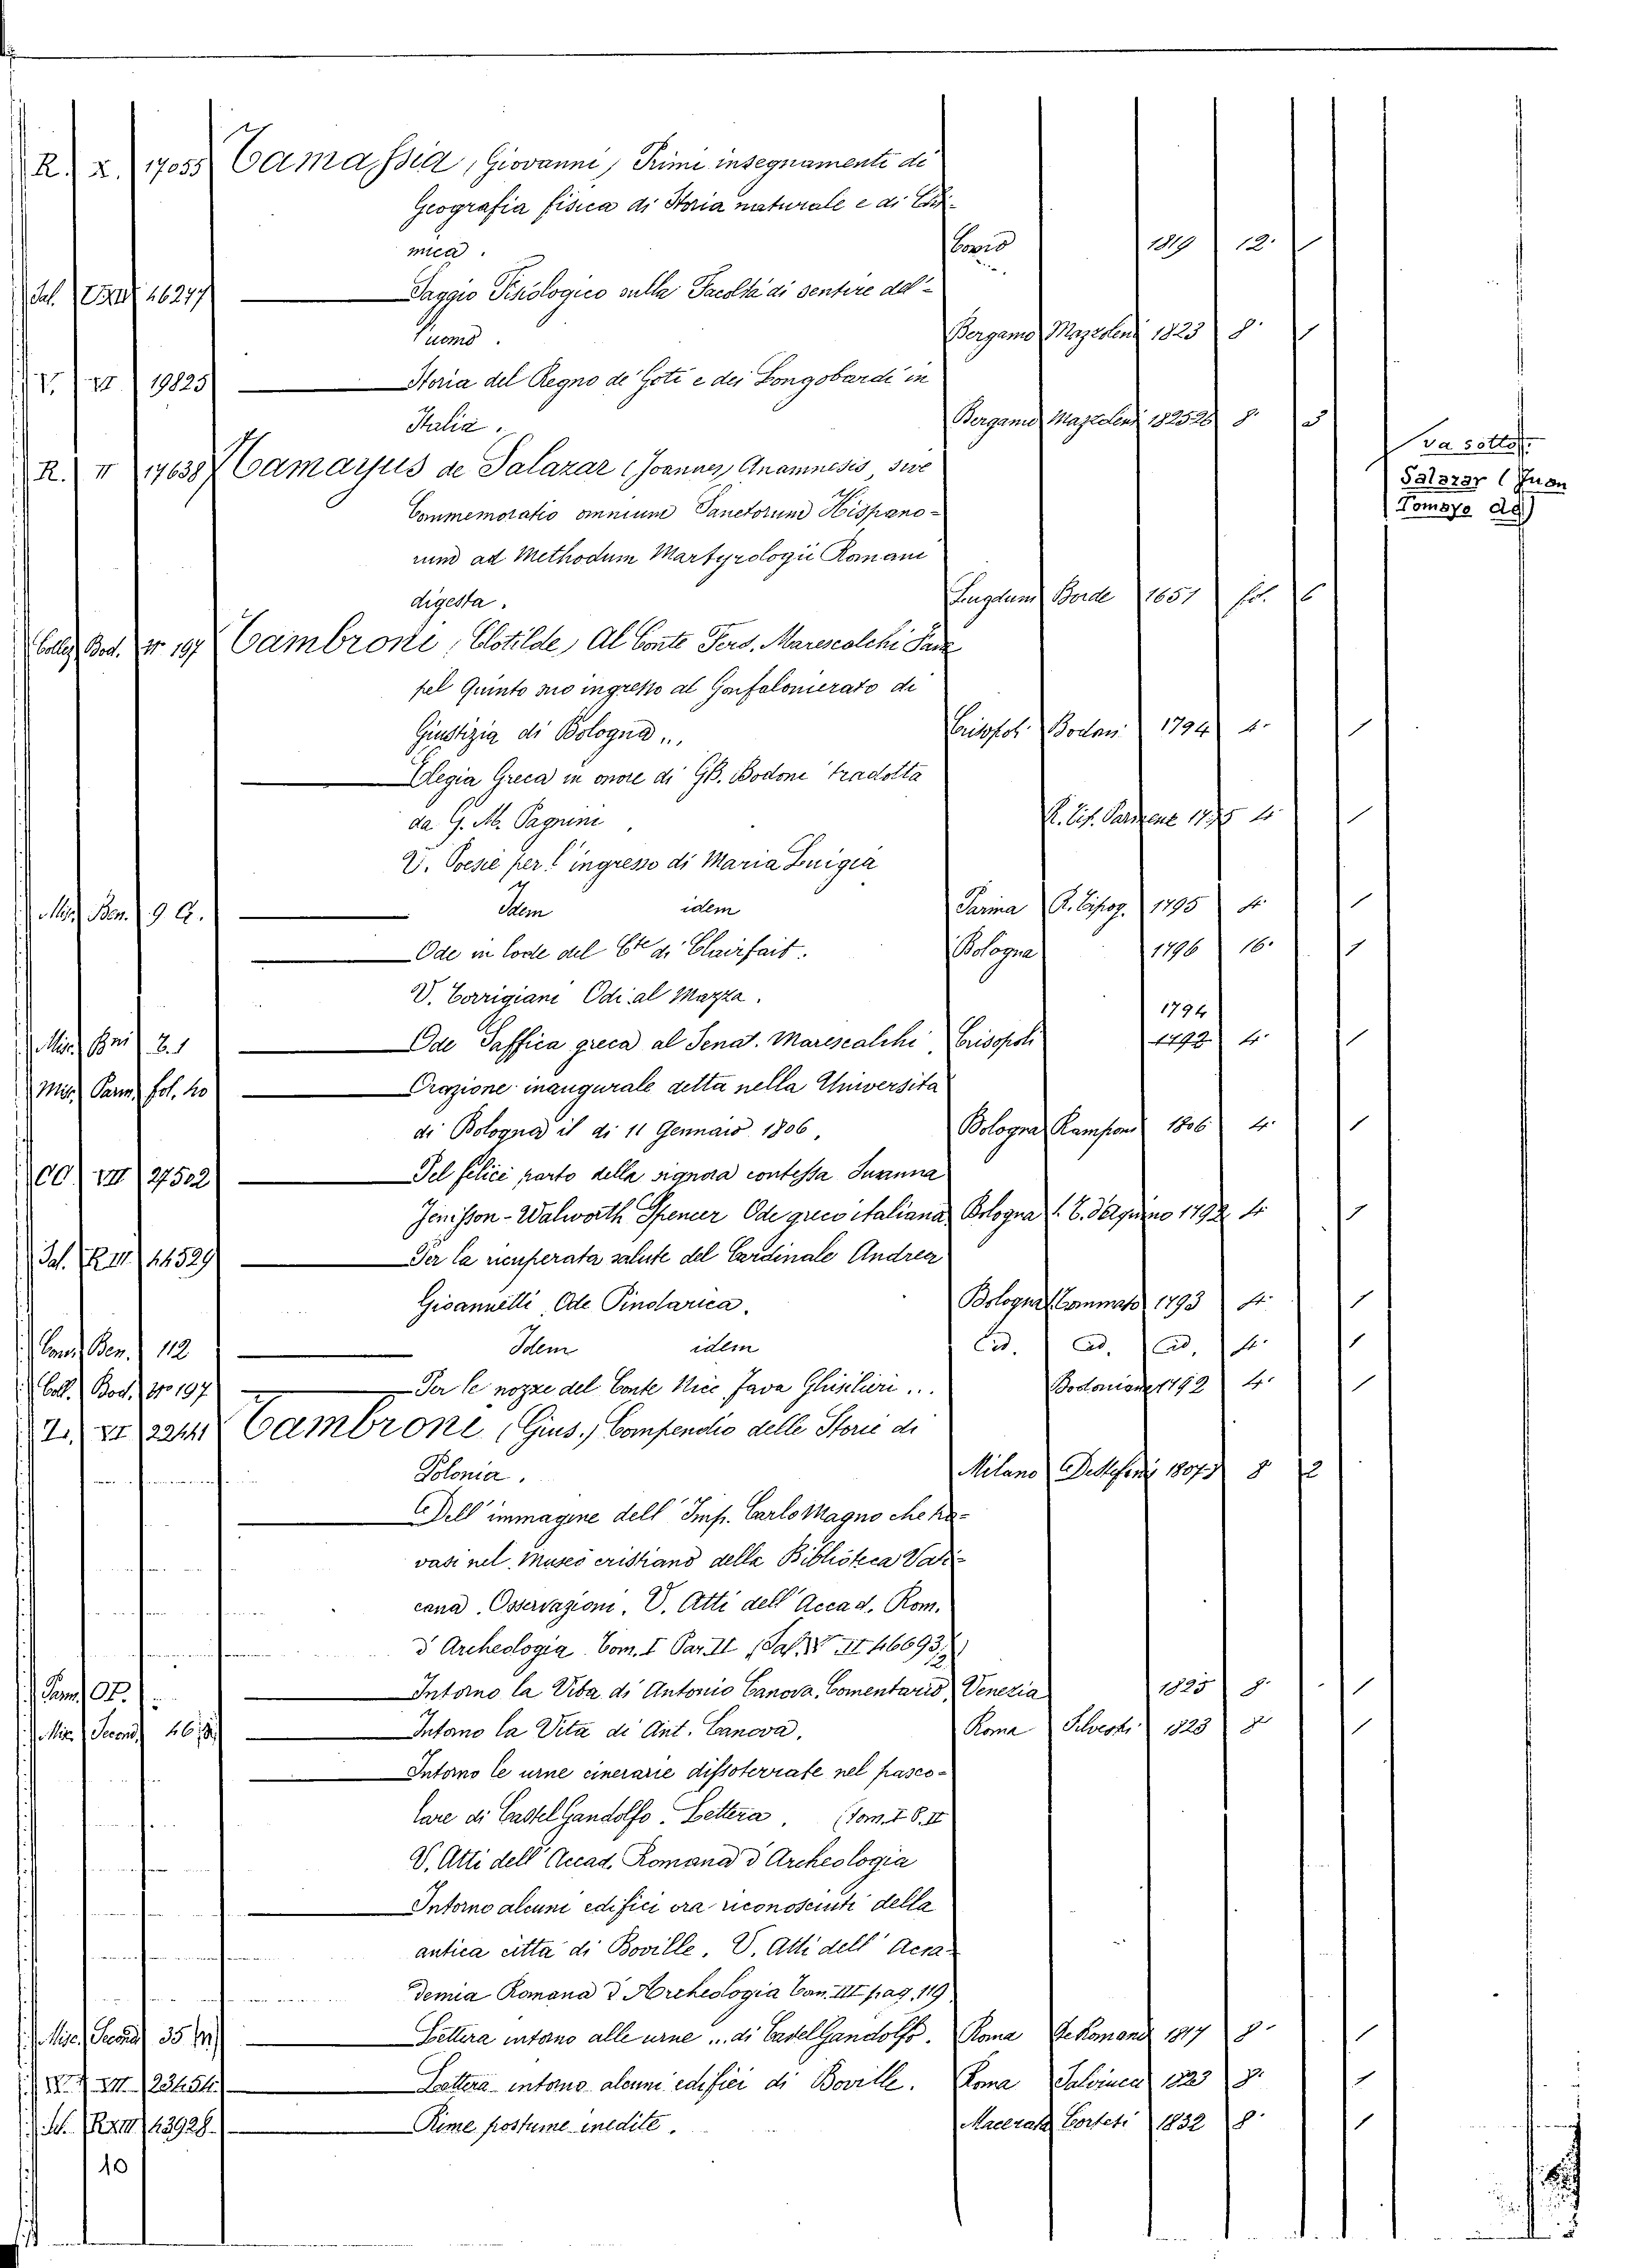 R. X. 17055 Tamassia, Giovanni, Primi insegnamenti di
Geografia fisica di Storia naturale e di Chi-
mica. Como 1819 12.
Sal. 46277 Saggio Fisiologico sulla Facoltà di sentire del-
l'uomo. Bergamo Mazzoleni 1823 8. 1
V. VI 19825 Storia del Regno de' Goti e dei Longobardi in
Italia. Bergamo Mazzoleni 1825 26 8. 3
R. II 17638 Tamayus de Salazar (Joannes) Anamnesis, sive
va sotto
Salazar (Juan
Tomayo de)
Commemoratio omnium Sanctorum Hispano-
rum ad Methodum Martyrologii Romani
digesta. Lugduni Borde 1651 fol. 6
Collez Bod. N° 197 Tambroni, Clotilde, Al Conte Ferd. Marescalchi
pel Quinto suo ingresso al Gonfalonierato di
Giustizia di Bologna... Crisopol. Bodoni 1794 4. 1
Elegia Greca in onore di GB. Bodoni tradotta
da G. M. Pagnini R. Tip. Parmense 1795 4. 1
V. Poesie per l'ingresso di Maria Luigia
Mis. Ben. 9 Idem idem Parma R. Tipog. 1795 4. 1
Ode in lode del Cte di Clairfait. Bologna 1796 16. 1
V. Corrigiani Odi al Mazza.
1794
Ode Saffica greca al Senat. Marescalchi, Crisopoli 1792 4. 1
Misc. Parm. fol. 40 Orazione inaugurale detta nella Università
di Bologna il dì 11 Gennaio 1806, Bologna Ramponi 1806 4. 1
CC. VII 27502 Pel felice parto della signora contessa Susanna
Jenisson-Walworth Spencer Ode greco italiana Bologna S. T. d'Aquino 1792 4 1
Sal. R III 44529 Per la ricuperata salute del Cardinale Andrea
Giovannetti, Ode Pindarica. Bologna 1793 4. 1
Ben. 112 Idem idem id. id. id. 4. 1
Coll. Bod. N° 197 Per le nozze del Conte Nicc. Fava Ghisilieri... Bodoniane 1792 4. 1
Z. VI 22441 Tambroni (Gius.) Compendio delle Storie di
Polonia. Milano Destefanis 1807 8 2
Dell'immagine dell'Imp. Carlo Magno che tro-
vasi nel Museo cristiano della Biblioteca Vati-
cana. Osservazioni. V. Atti dell'Accad. Rom.
d'Archeologia Tom. I Par. II (Sal. V II 46693)
Parm. Intorno la Vita di Antonio Canova, Comentario, Venezia 1825 8. 1
Misc. Second. Intorno la Vita di Ant. Canova. Roma Silvestri 1823 8. 1
Intorno le urne cinerarie dissoterrate nel pasco-
lare di Castel Gandolfo. Lettera. (Tom. I P. II
V. Atti dell'Accad. Romana d'Archeologia
Intorno alcuni edifici ora riconosciuti della
antica città di Boville. V. Atti dell'Acca-
demia Romana d'Archeologia Tom. III pag. 119
Misc. Second. 35 Lettera intorno alle urne... di Castel Gandolfo. Roma De Romanis 1817 8. 1
23454 Lettera intorno alcuni edifici di Boville. Roma Salviucci 1823 8. 1
43928 Rime postume inedite. Macerata Cortesi 1832 8. 1
10